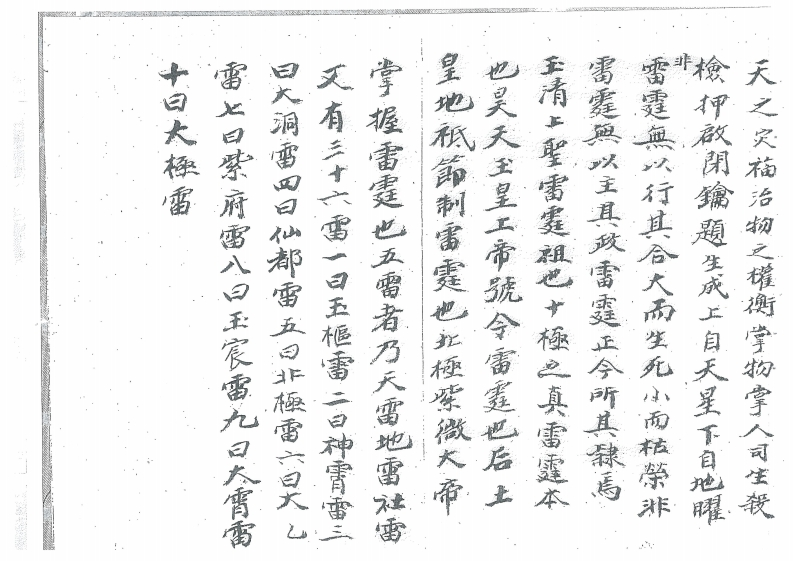 天之災福治物之權衡掌物掌人司生殺
檢押啟閉鑰題生成上自天星下自地曜
非
雷霆無以行其合大而生死小而枯榮非
雷霆無以主其政雷霆正令所其隸焉
玉清上聖雷霆祖也十極之真雷霆本
也昊天玉皇上帝號令雷霆也后土
皇地祇節制雷霆也北極紫微大帝
掌握雷霆也五雷者乃天雷地雷社雷
又有三十六雷一曰玉樞雷二曰神霄雷三
曰大洞雷四曰仙都雷五曰北極雷六曰太乙
雷七曰紫府雷八曰玉宸雷九曰太霄雷
十曰太極雷